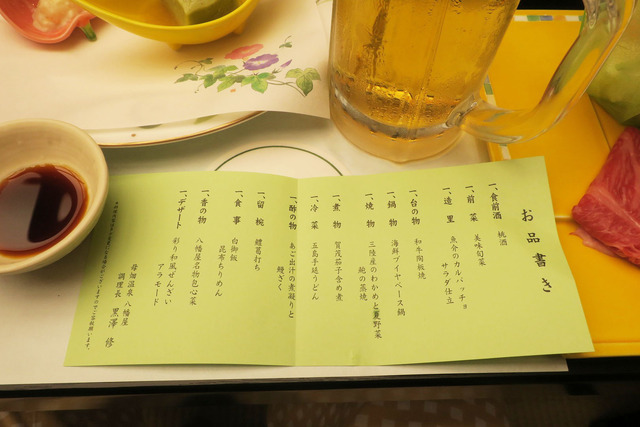 お品書き
一、食前酒 桃酒
一、前菜 美味旬菜
一、造里 魚介のカルパッチョ
サラダ仕立
一、台の物 和牛陶板焼
一、鍋物 海鮮ブイヤベース鍋
一、焼物 三陸産のわかめと夏野菜
鮑の蒸焼
一、煮物 賀茂茄子含め煮
一、冷菜 五島手延うどん
一、酢の物 あご出汁の煮凝りと
鰻ざく
一、留椀 鱧葛打ち
一、食事 白御飯
昆布ちりめん
一、香の物 八幡屋名物包心菜
一、デザート 彩り和風ぜんざい
アラモード
母畑温泉 八幡屋
調理長 黒澤 修